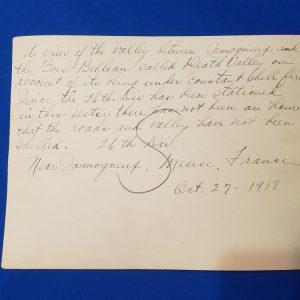 A view of the valley between Samogneux and
the Bois Belleau called Death Valley on
account of its being under constant shell fire
Since the 26th. Div has been stationed
in this sector there has not been an hour
that the roads and valley have not been
shelled. 26th Div.
Near Samogneux, Meuse, France
Oct. 27 - 1918